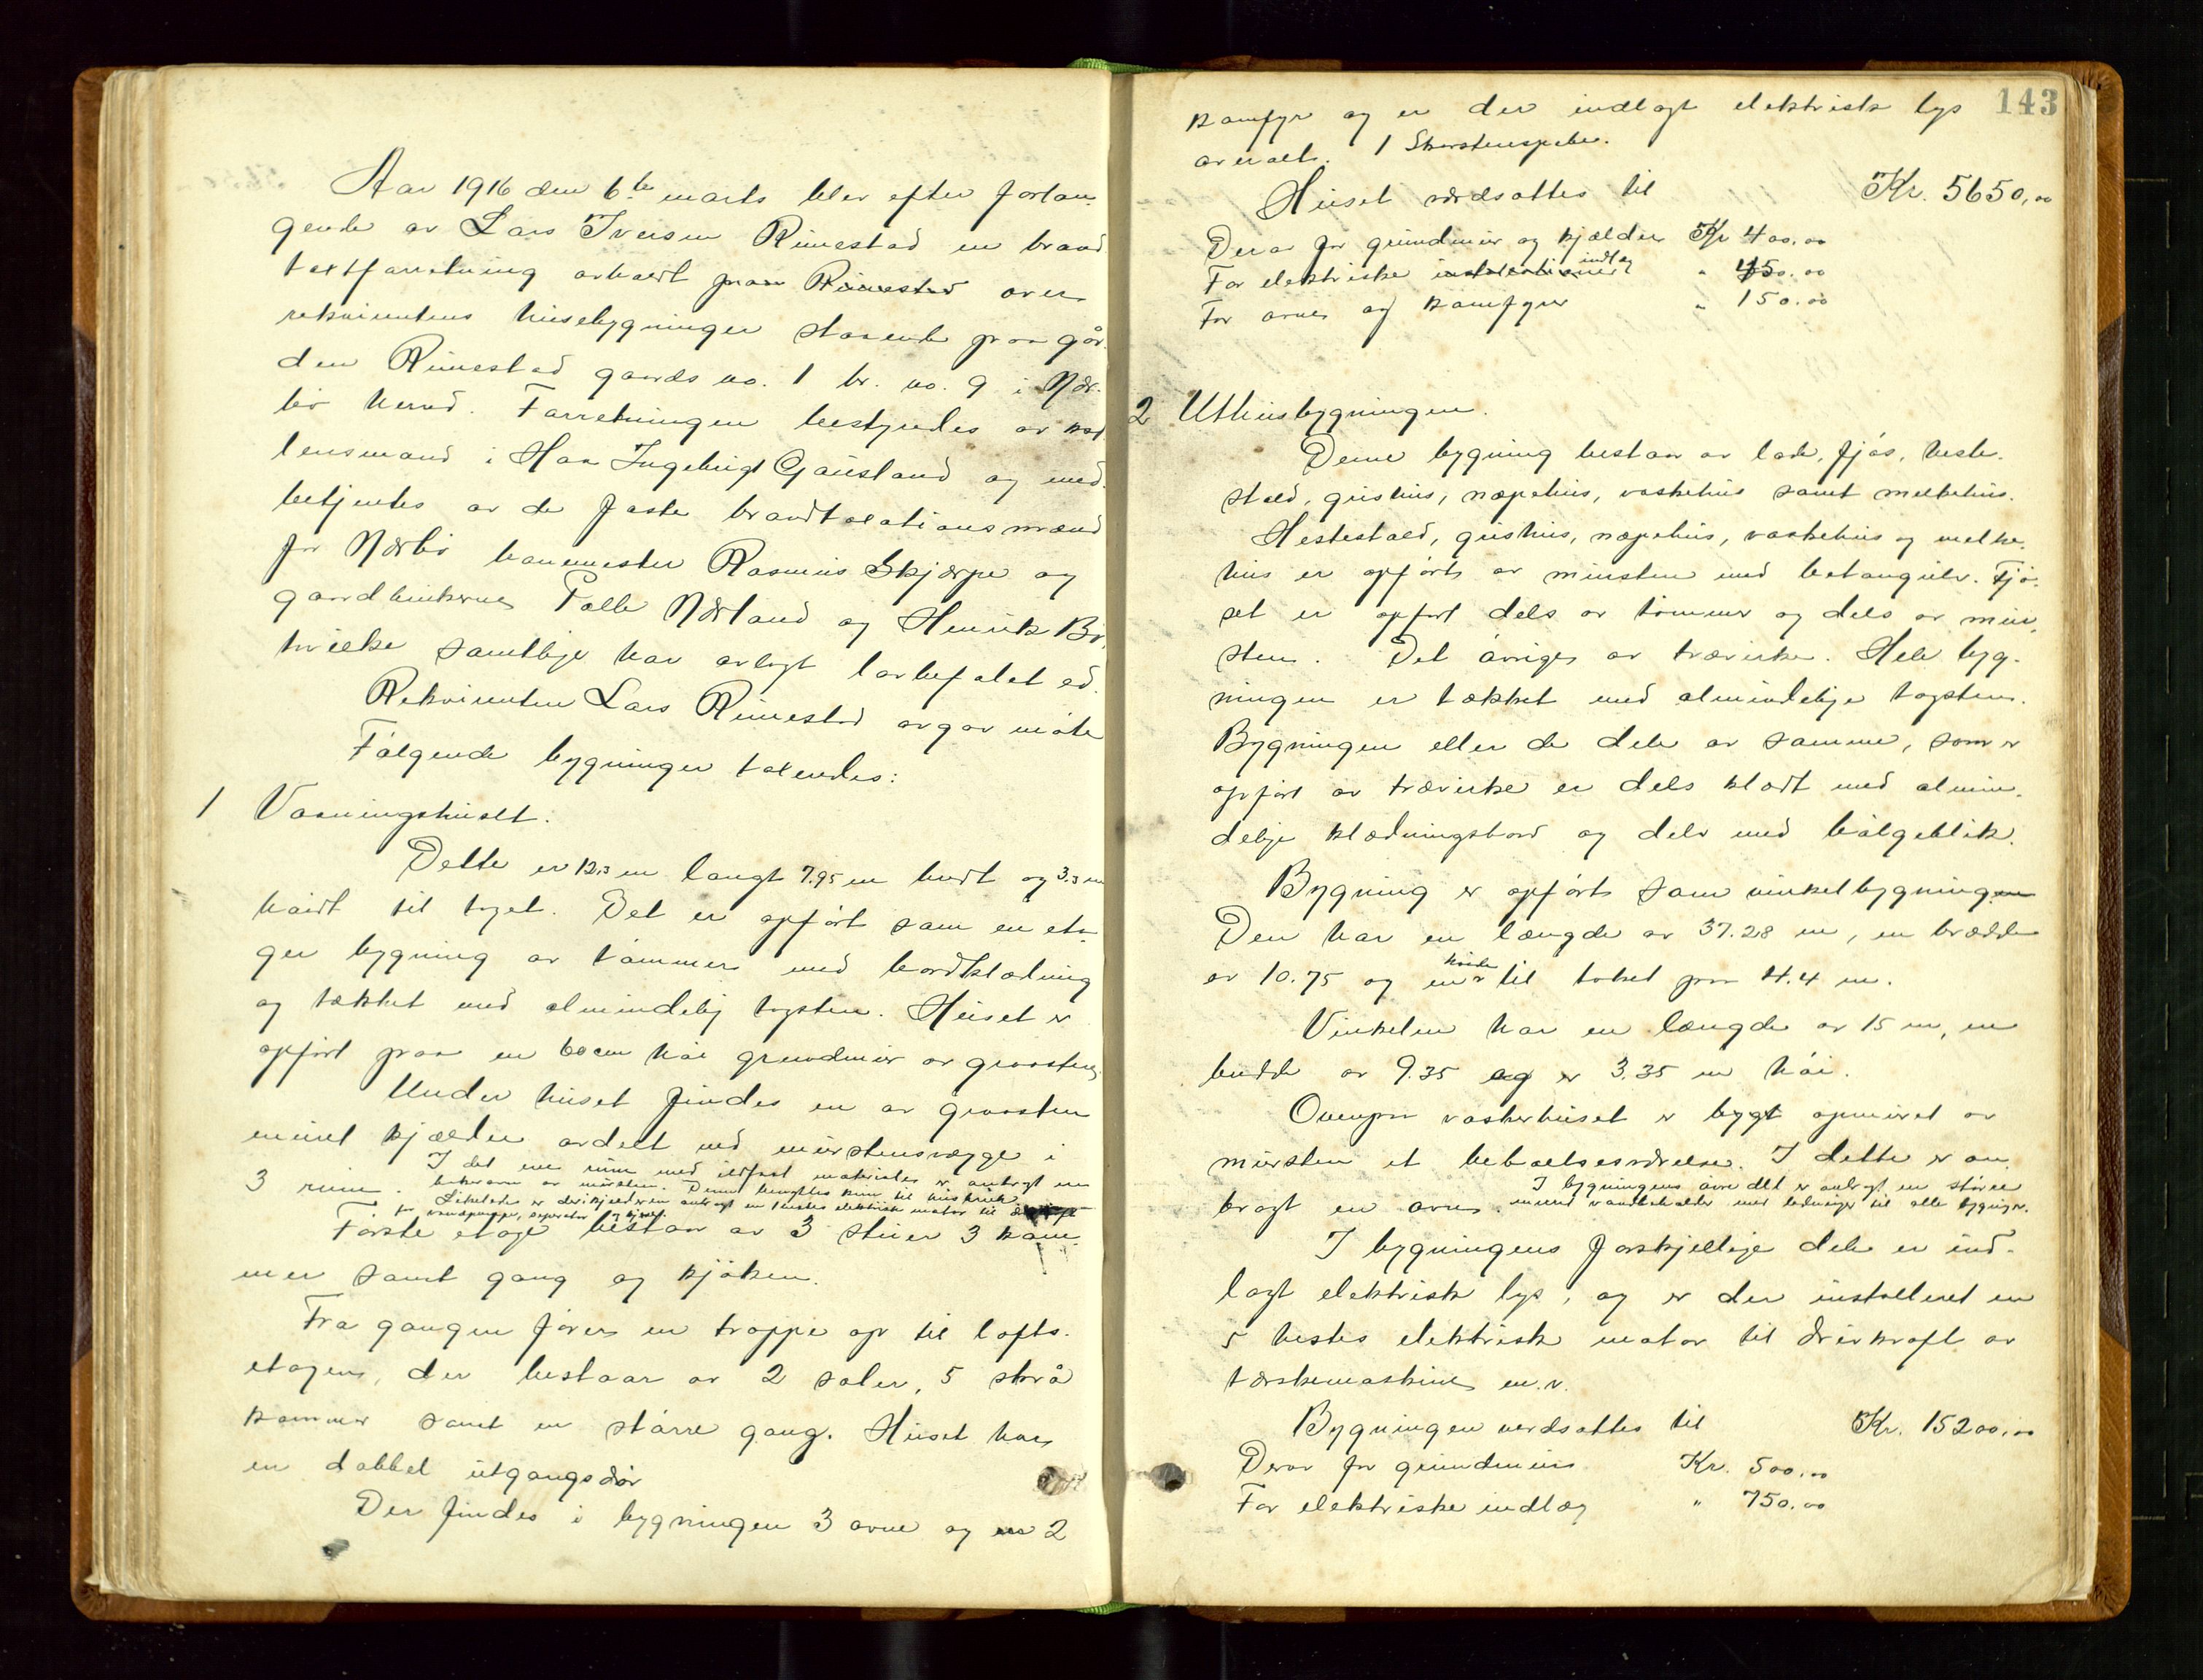 Aar 1916 den 6te marts blev efter forlan-
gende av Lars Iversen Rimestad en brand
taxtforretning avholdt paa Rimestad over
rekvirentens husebygninger staaende paa går-
den Rimestad gaards no. 1 br. no. 9 i Nær-
bø herred. Forretningen bestyredes av
lensmand i Haa Ingebrigt Gausland og med-
betjentes av de faste brandtaxationsmænd
for Nærbø banemester Rasmus Skjærpe og
gaardbrukerne Palle Nærland og Henrik Bø,
hvilke samtlige har avlagt lovbefalet ed.
Rekvirenten Lars Rimestad avgav møte
Følgende bygninger taxeredes:
1 Vaaningshuset.
Dette er 12.3 m langt 7.95 m bredt og 3.3 m
høidt til taget. Det er opført som en eta-
ges bygning av tømmer med bordklædning
og tækket med almindelig tagsten. Huset er
opført paa en 60 cm høi grundmur av graasten,
Under huset findes en av graasten
muret kjælder avdelt med murstensvægge i
3 rum. I det ene rum med ildfast materialer er anbragt en
bakerovn av mursten. Denne benyttes kun til husbruk.
Likeledes er der i kjælderen anbragt en 1 hestes elektrisk motor til
for vandpumpe, separator og kjerne.
Første etage bestaar av 3 stuer 3 kam-
mer samt gang og kjøken.
Fra gangen fører en trappe op til lofts-
etagen, der bestaar av 2 saler, 5 skrå
kammer samt en større gang. Huset har
en dobbel utgangsdør
Der findes i bygningen 3 ovne og en 2
143
komfyr og er der indlagt elektrisk lys
overalt. 1 Skorstenspibe.
Huset værdsattes til Kr. 5650,00
Derav for grundmur og kjælder Kr 400.00
For elektriske installationer indlæg " 450.00
For ovne og komfyrer " 150.00
2 Uthusbygningen.
Denne bygning bestaar av lade, fjøs, heste-
stald, grishus, næpehus, vaskehus samt melkehus.
Hestestald, grishus, næpehus, vaskehus og melke-
hus er opført av mursten med betongulv. Fjø-
set er opført dels av tømmer og dels av mur-
sten. Det øvrige av træverke. Hele byg-
ningen er tækket med almindelige tagsten.
Bygningen eller de dele av samme, som er
opført av træverke er dels klædt med almin-
delige klædningsbord og dels med bølgeblik.
Bygning er opført som vinkelbygningen
Den har en længde av 37.28 m, en bredde
av 10.75 og en høide til taket paa 4.4 m.
Vinkelen har en længde av 15 m, en
bredde av 9.35 og er 3.35 m høi.
Ovenpaa vaskehuset er bygt opmuret av
mursten et beboelsesværelse. I dette er an-
bragt en ovn. I bygningens øvre del er anbragt en større
muret vandbeholder med ledninger til alle bygninger.
I bygningens forskjellige dele er ind-
lagt elektrisk lys, og er der installeret en
5 hestes elektrisk motor til drivkraft av
tærskemaskine m.v.
Bygningen verdsattes til Kr. 15200,00
Derav for grundmur Kr. 500,00
For elektriske indlæg " 750.00